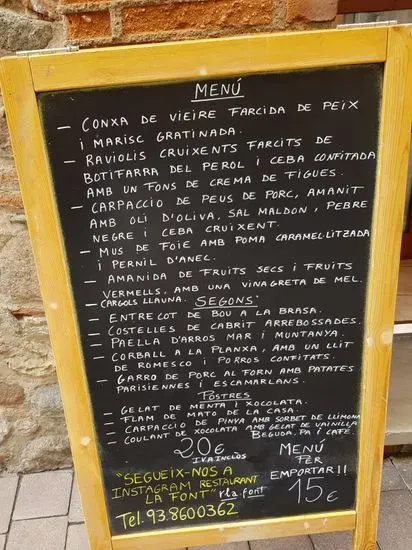 MENÚ
- CONXA DE VIEIRE FARCIDA DE PEIX
I MARISC GRATINADA.
- RAVIOLIS CRUIXENTS FARCITS DE
BOTIFARRA DEL PEROL I CEBA CONFITADA
AMB UN FONS DE CREMA DE FIGUES.
- CARPACCIO DE PEUS DE PORC, AMANIT
AMB OLI D'OLIVA, SAL MALDON, PEBRE
NEGRE I CEBA CRUIXENT.
- MUS DE FOIE AMB POMA CARAMEL·LITZADA
I PERNIL D'ANEC.
- AMANIDA DE FRUITS SECS I FRUITS
VERMELLS, AMB UNA VINAGRETA DE MEL.
- CARGOLS LLAUNA.
SEGONS
- ENTRECOT DE BOU A LA BRASA.
- COSTELLES DE CABRIT ARREBOSSADES.
- PAELLA D'ARROS MAR I MUNTANYA.
- CORBALL A LA PLANXA, AMB UN LLIT
DE ROMESCO I PORROS CONFITATS.
- GARRO DE PORC AL FORN AMB PATATES
PARISIENNES I ESCAMARLANS.
POSTRES
- GELAT DE MENTA I XOCOLATA.
- FLAM DE MATO DE LA CASA.
- CARPACCIO DE PINYA AMB SORBET DE LLIMONA
- COULANT DE XOCOLATA AMB GELAT DE VAINILLA
BEGUDA, PA I CAFE.
20€
IVA INCLÒS
MENÚ
PER
EMPORTAR!!
15€
"SEGUEIX-NOS A
INSTAGRAM RESTAURANT
LA FONT" rla.font
Tel. 93.8600362